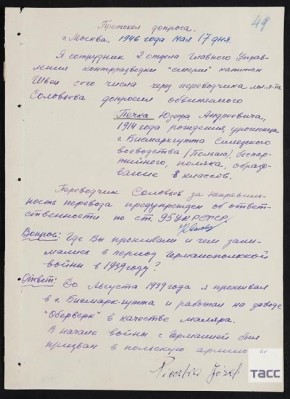 49
Протокол допроса.
г. Москва. 1946 года мая 17 дня.
Я сотрудник 2 отдела Главного Управ-
ления контрразведки "Смерш" капитан
сего числа через переводчика
Соловьова допросил обвиняемого
Андреевича,
1914 года рождения, уроженца
г. Бисмаркгутта
воеводства (Польша), беспар-
тийного, поляка, образо-
вание 8 классов.
Переводчик Соловьов за неправиль-
ность перевода предупрежден об ответ-
ственности по ст. 95 УК РСФСР.
Вопрос: Где Вы проживали и чем зани-
мались в период германопольской
войны в 1939 году?
Ответ: До августа 1939 года я проживал
в г. Бисмаркгутта и работал на заводе
"Оберверк" в качестве маляра.
В начале войны с Германией был
призван в польскую армию и
Józef
ТАСС